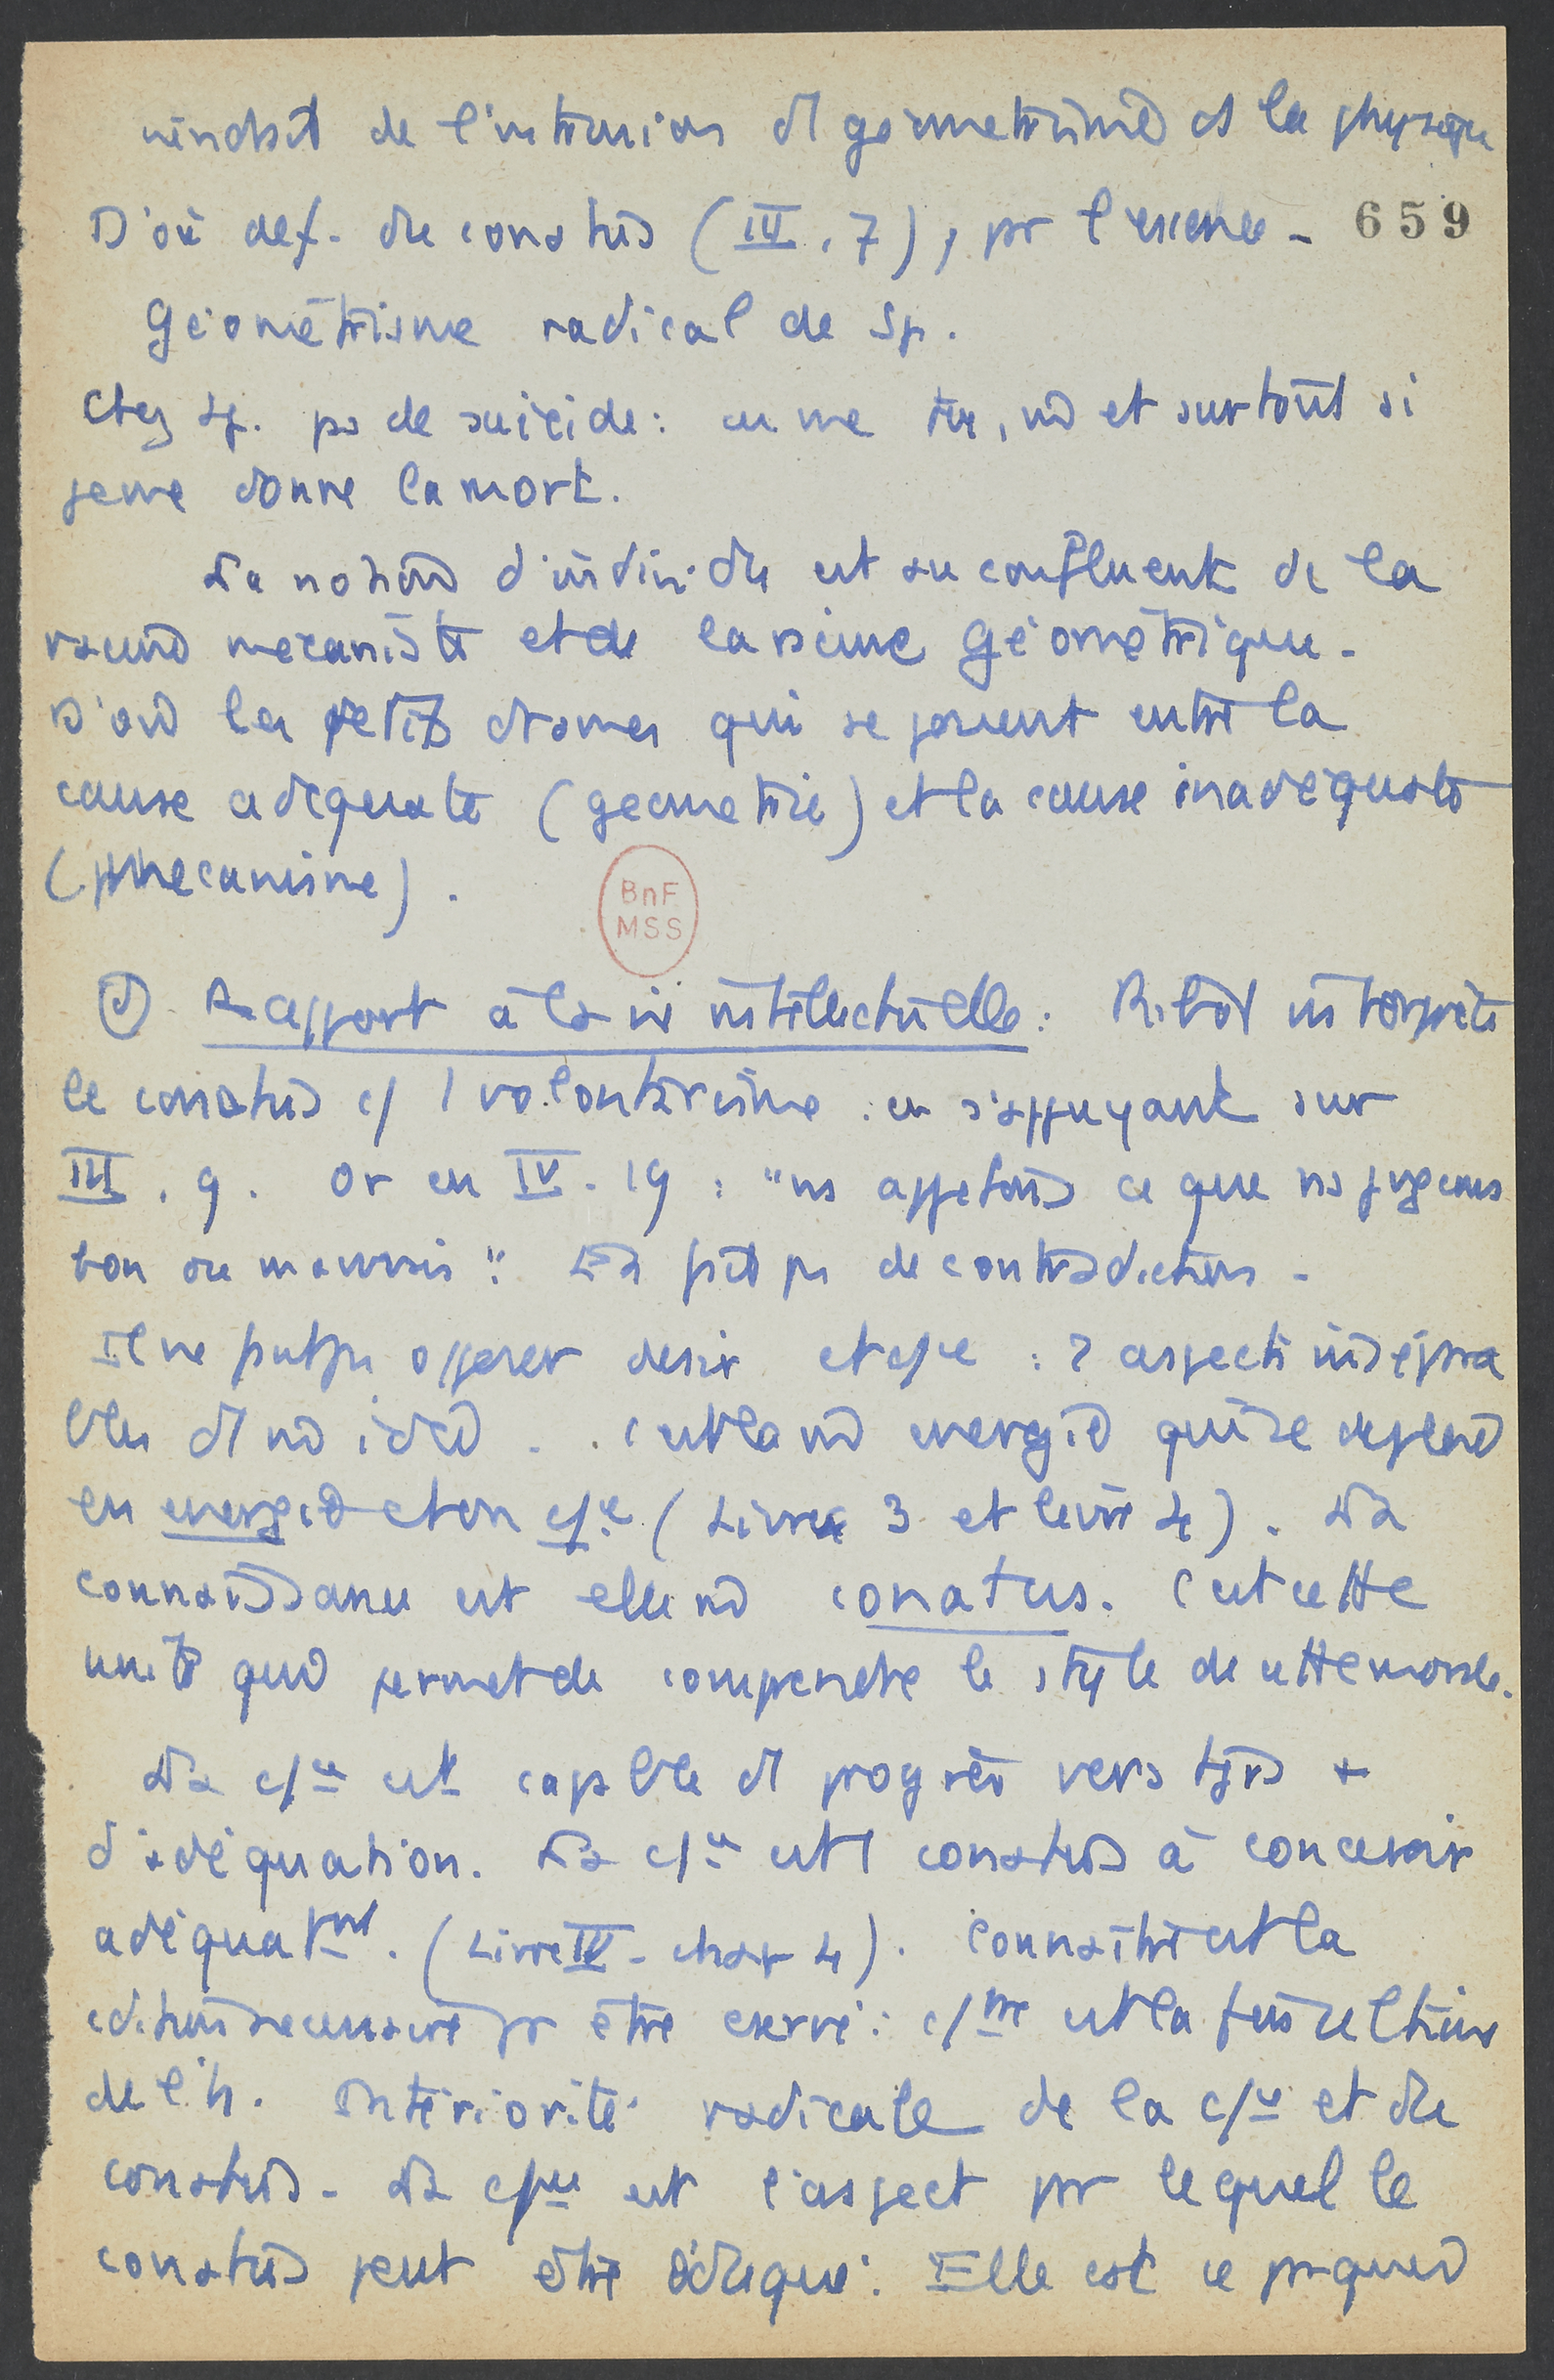 de l'intrusion ds géométrisme ds la physique
D'où def. du conatus (III, 7), pr l'essence - 659
Géométrisme radical de Sp.
Chez Sp. ps de suicide : on me tue, mê et surtout si
je me donne la mort.
La notion d'individu est au confluent de la
racine mécaniste et de la racine géométrique.
D'où les petits drames qui se jouent entre la
cause adéquate (géométrie) et la cause inadéquate
(mécanisme).
BnF
MSS
Rapport à la vie intellectuelle : Ribot interprète
le conatus c/ 1 volontarisme en s'appuyant sur
III, 9. Or en IV. 19 : "ns appetons ce que ns jugeons
bon ou mauvais". Là pt ps de contradiction.
Il ne put ps opposer desir et c/ce : 2 aspects insépara
bles d'1 mê idée. C'est la mê energie qui se deploie
en energie et en c/ce (Livre 3 et livre 4). La
connaissance est elle mê conatus. C'est cette
unité qui permet de comprendre le style de cette morale.
La c/ce est capable d'1 progrès vers tjrs +
d'adéquation. La c/ce est 1 conatus à concevoir
adéquatmt. (Livre IV - chap 4). Connaître est la
cdition necessaire pr être : c/tre est la fin
de l'h. Intériorité radicale de la c/ce et du
conatus. La c/ce est l'aspect pr lequel le
conatus peut être éduqué. Elle est ce pr quoi